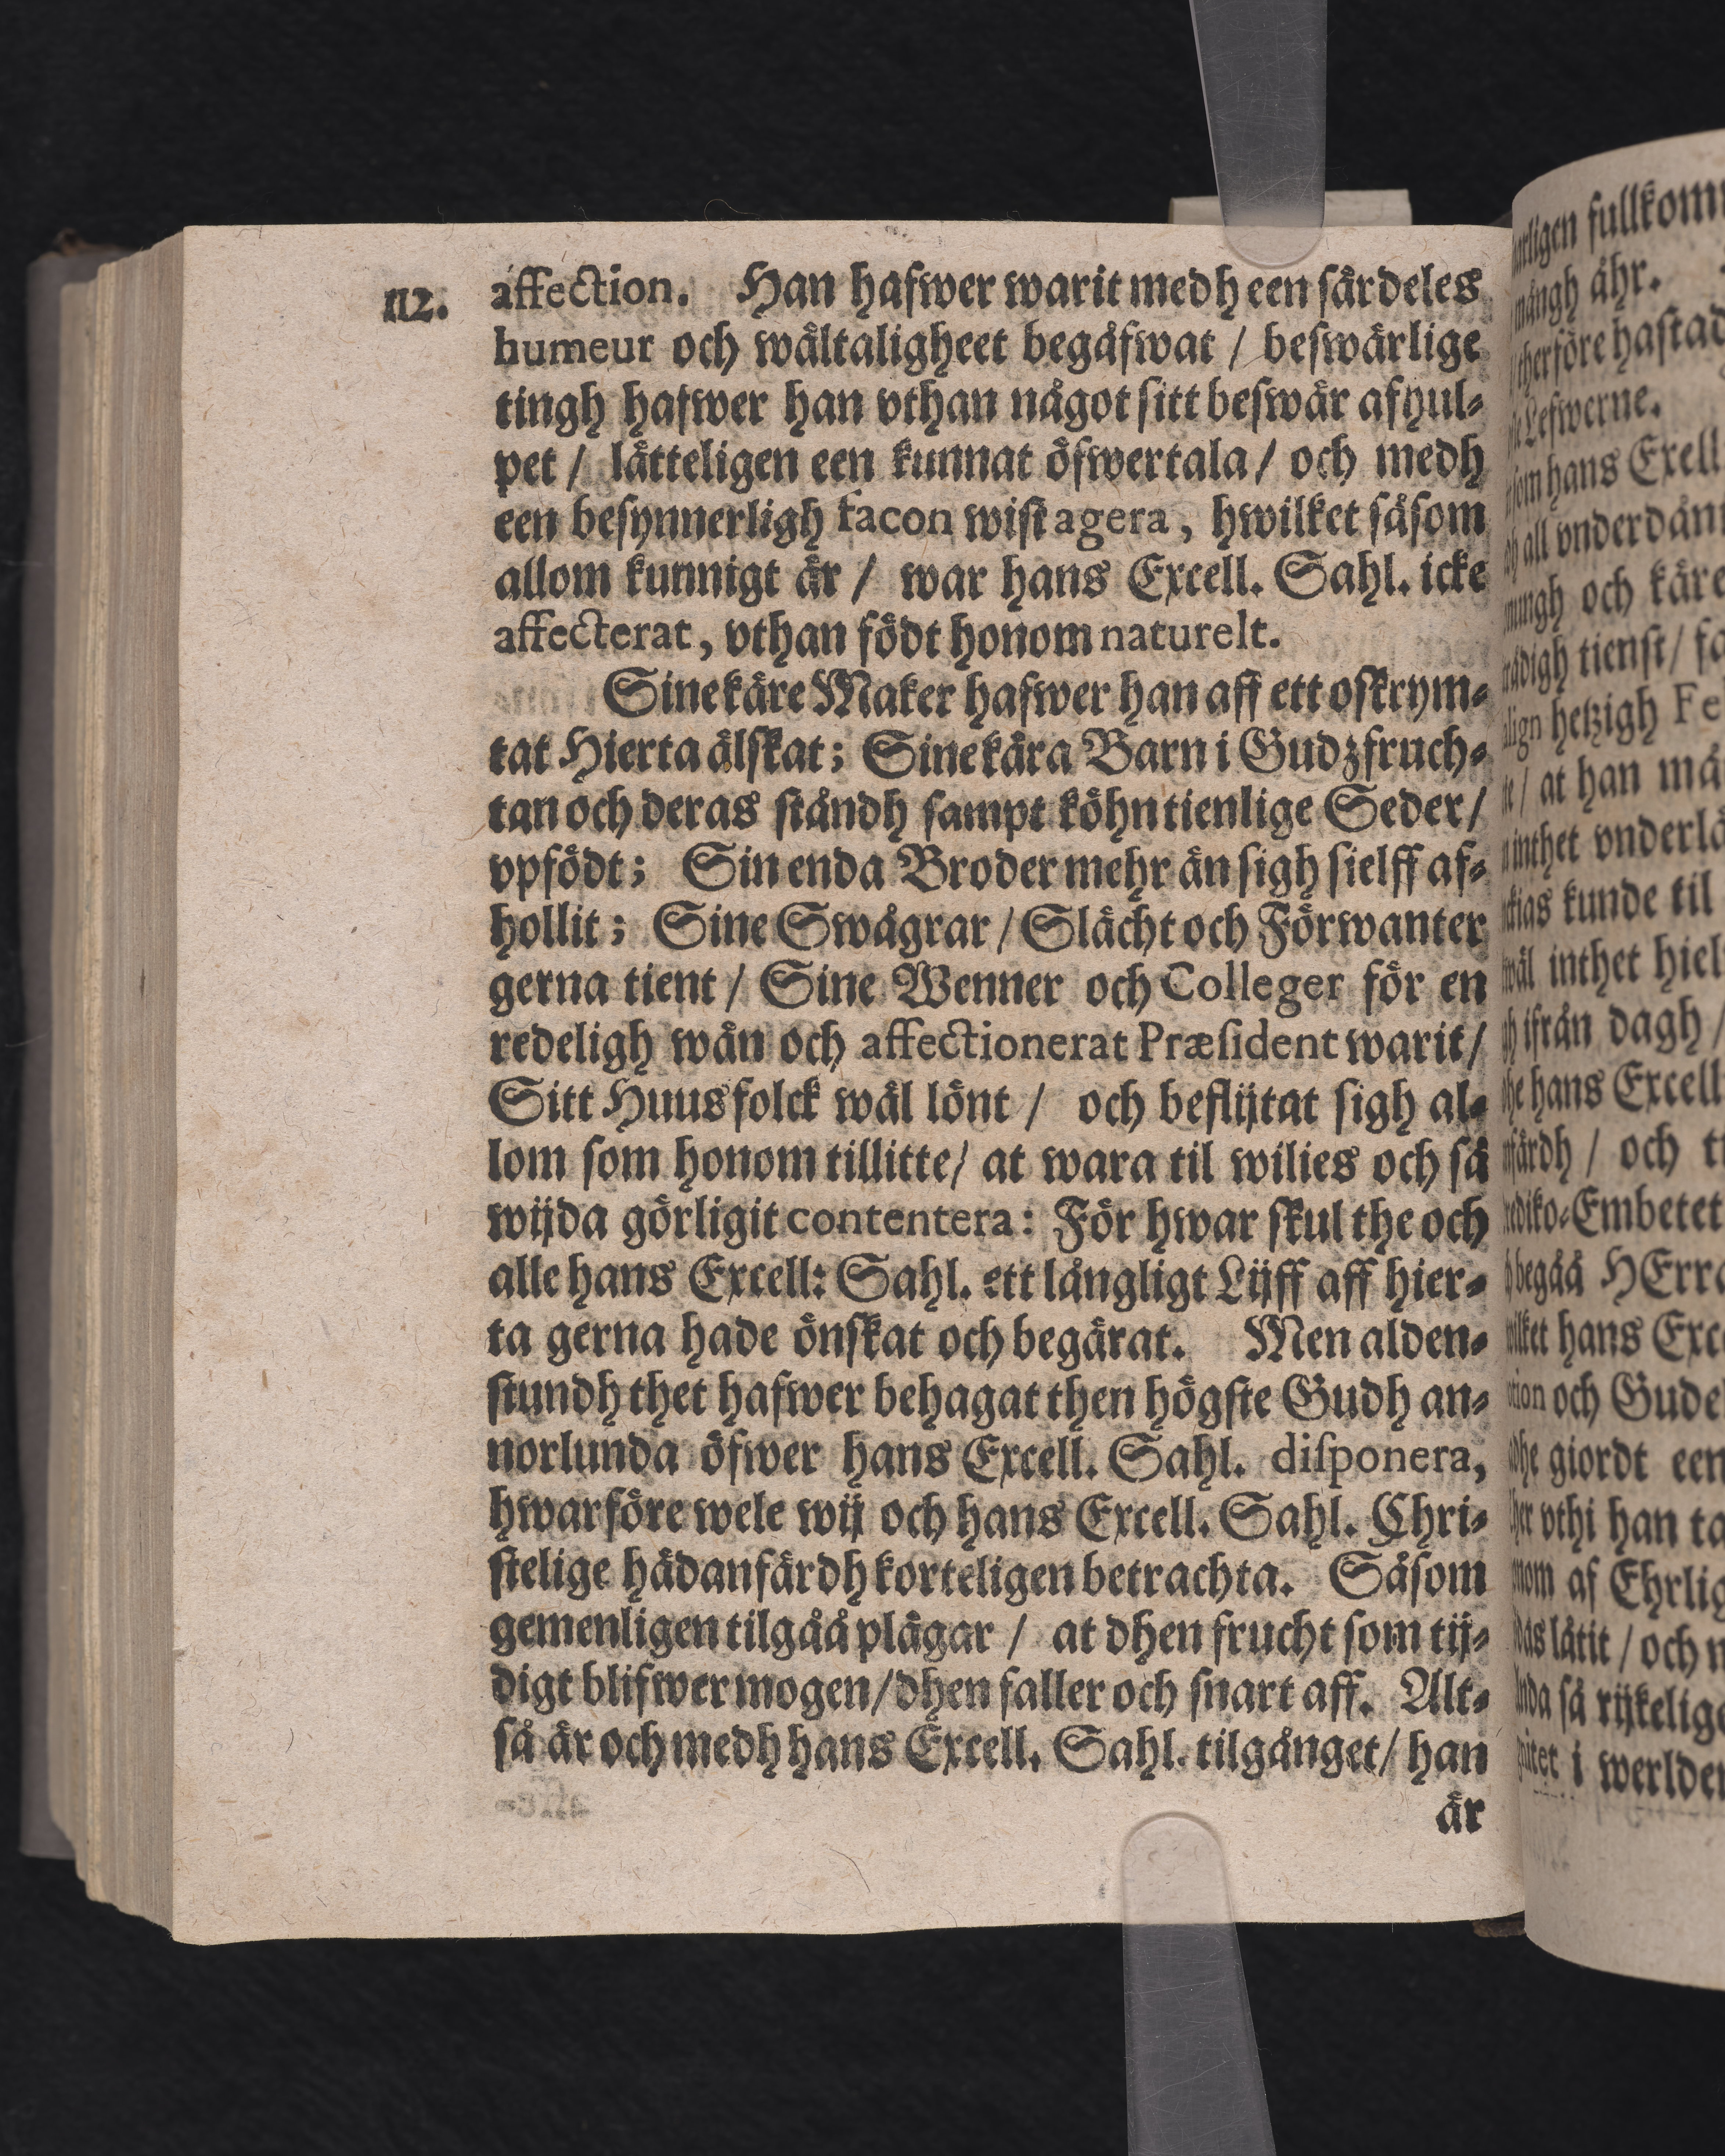 112.
affection. Han hafwer warit medh een särdeles
humeur och wältaligheet begåfwat / beswärlige
tingh hafwer han vthan något sitt beswär afhul-
pet / lätteligen een kunnat öfwertala / och medh
een besynnerligh facon wist agera, hwilket såsom
allom kunnigt är / war hans Excell. Sahl. icke
affecterat, vthan födt honom naturelt.
Sine käre Maker hafwer han aff ett oskrym-
tat Hierta älskat; Sine kära Barn i Gudzfruch-
tan och deras ståndh sampt köhn tienlige Seder /
vpfödt; Sin enda Broder mehr än sigh sielff af-
hollit; Sine Swågrar / Slächt och Förwanter
gerna tient / Sine Wenner och Colleger för en
redeligh wän och affectionerat Præsident warit /
Sitt Huusfolck wäl lönt / och beflijtat sigh al-
lom som honom tillitte / at wara til wilies och så
wijda görligit contentera: För hwar skul the och
alle hans Excell: Sahl. ett långligt Lijff aff hier-
ta gerna hade önskat och begärat. Men alden-
stundh thet hafwer behagat then högste Gudh an-
norlunda öfwer hans Excell. Sahl. disponera,
hwarföre wele wij och hans Excell. Sahl. Chri-
stelige hädanfärdh korteligen betrachta. Såsom
gemenligen tilgåå plägar / at dhen frucht som tij-
digt blifwer mogen / dhen faller och snart aff. Alt-
så är och medh hans Excell. Sahl. tilgånget / han
är
fullkom
mångh åhr.
therföre hastad
Lefwerne.
som hans Exell
all vnderdån
och käre
tienst / fa
hetzigh Fe
/ at han må
inthet vnderlå
kunde til
inthet hiel
ifrån dagh /
hans Excell
/ och ti
Embetet
begåå HErra
hans Exce
och Gude
giordt een
vthi han ta
af Ehrlig
låtit / och n
så rijkelige
i werlden